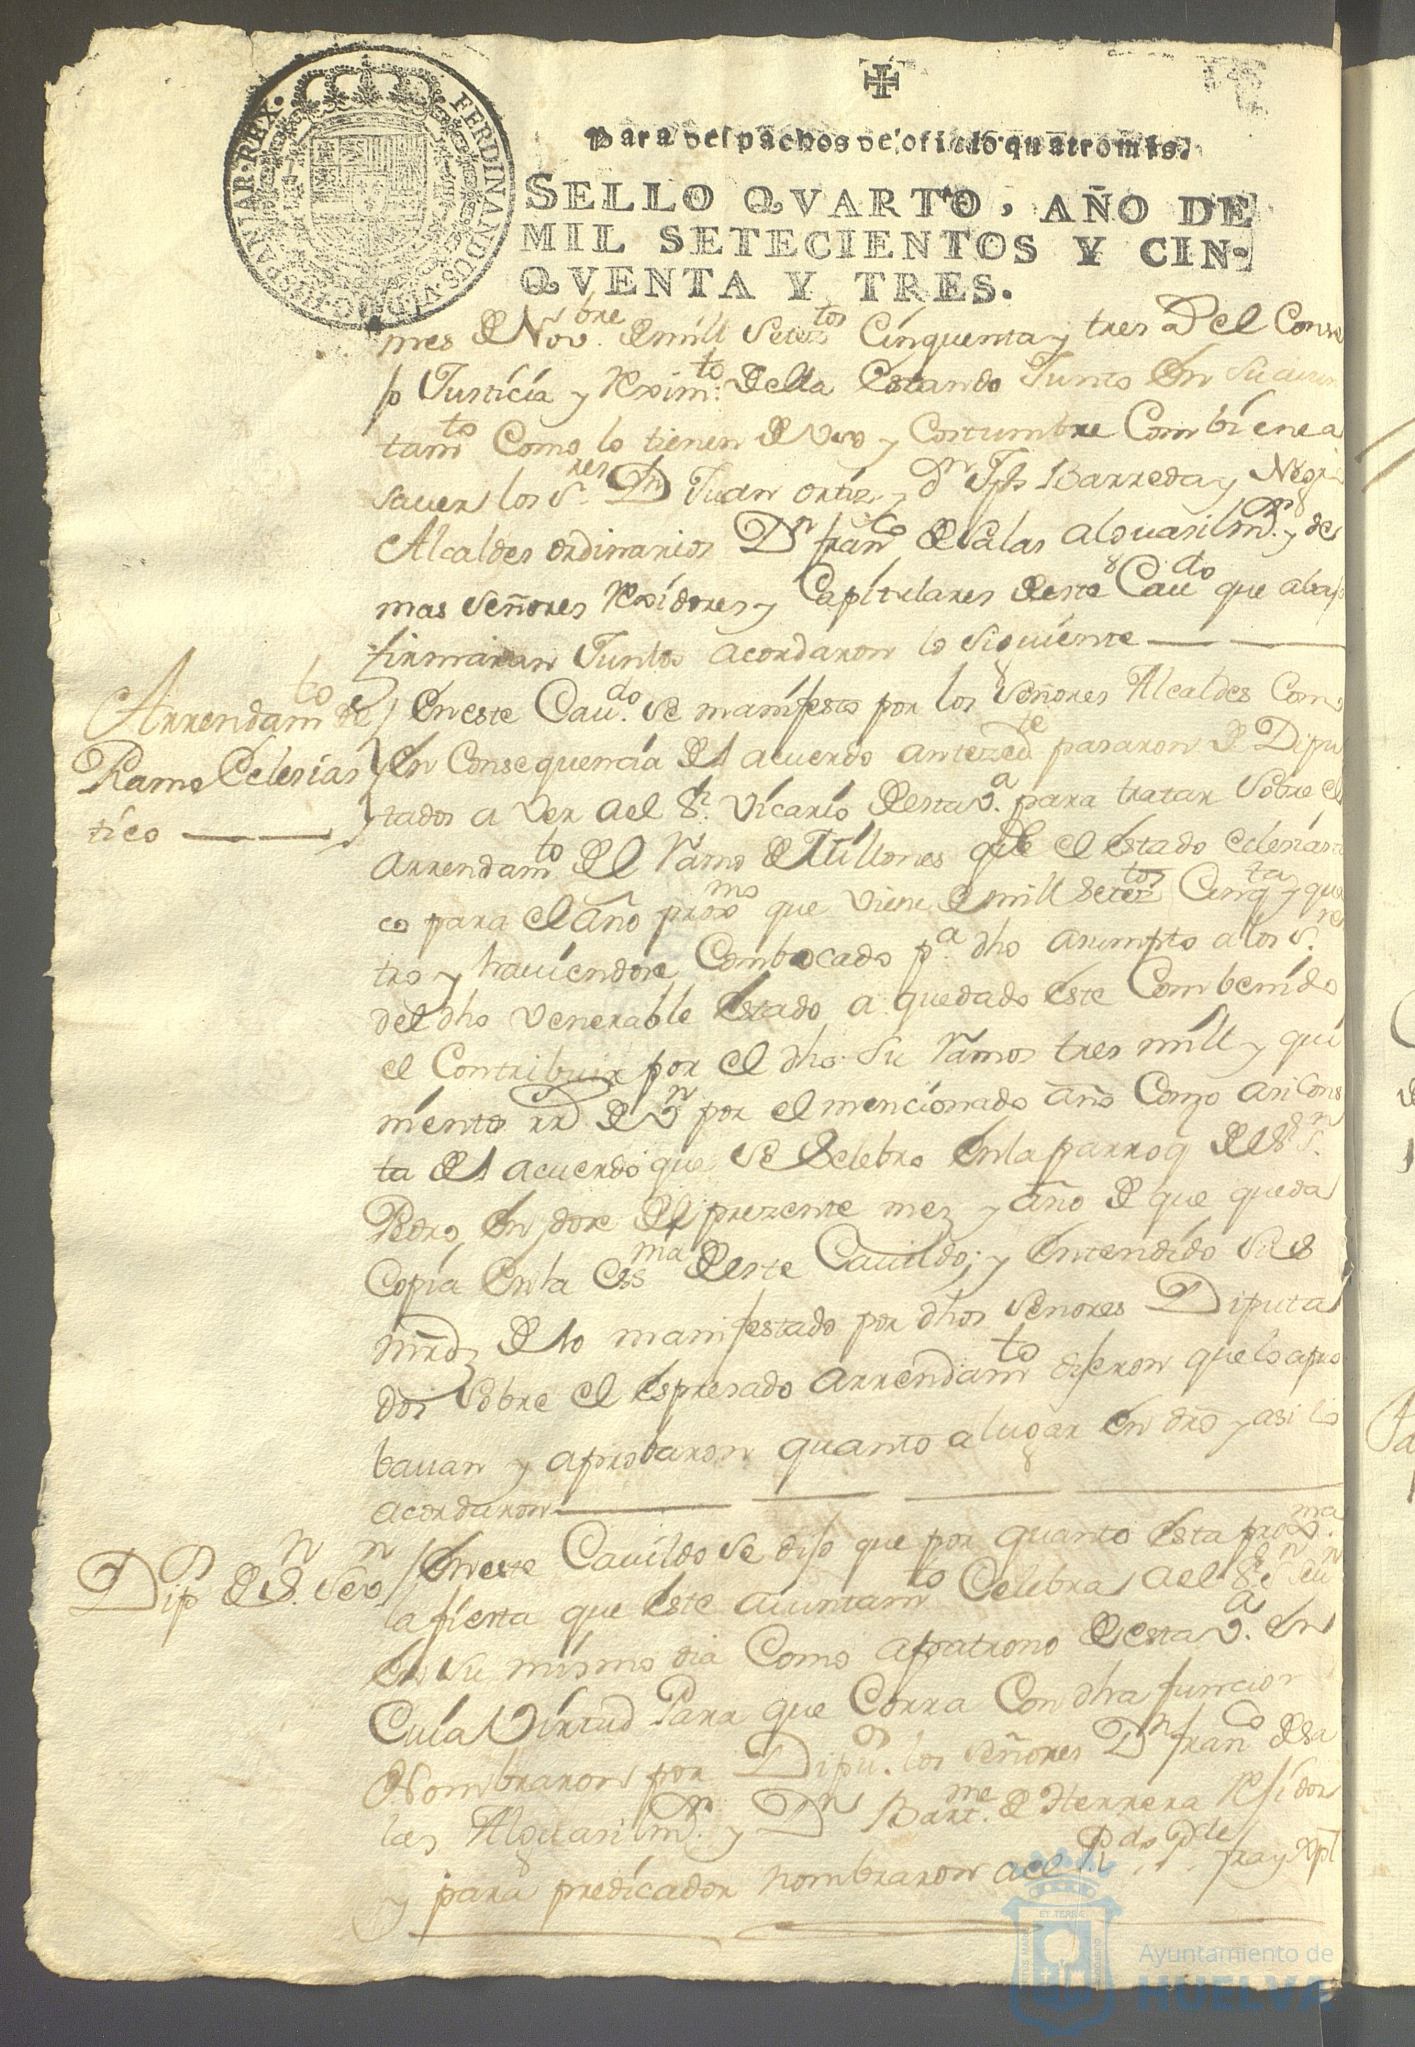 FERDINANDUS.VI.D.G.HISPANIAR.REX.
Para despachos de oficio quatro mrs.
SELLO QVARTO, AÑO DE
MIL SETECIENTOS Y CIN-
QVENTA Y TRES.
mes de Nov.bre de mill setetos Cinquenta y tres a.s el Conse
jo Justicia y Reximto. della Estando Junto En su aiun
tamto Como lo tienen de uso y Costumbre Combiene a
sauer los S.res Dn Juan ortiz y dn Jph Barreda y
Alcaldes ordinarios Dn franco de Salas alguasil mr. y de
mas Señores Rexidores y Capitulares deste Caudo que abajo
firmaran Juntos acordaron lo siguiente
Arrendamto de
Ramo Eclesias
tico
En este Caudo. se manifesto por los Señores Alcaldes Como
En Consequencia del acuerdo antezedte pasaron de Dipu
tados a ver a el Sr. Vicario desta va. para tratar sobre el
arrendamto del Ramo de Millones que el Estado eclesiasti
co para el año proxmo que viene de mill setetos Cinqta y qua
tro y hauiendose Combocado pa. dho asumpto a los S.res
del dho venerable Estado a quedado este Combenido
el Contribuir por el dho su Ramos tres mill y qui
nientos rrs de vn por el mencionado año Como asi Cons
ta del acuerdo que se selebro En la parroq de el Sn S.n
Pedro En dose del prezente mez y año de que queda
Copia En la Essma deste Cauildo; y Entendido sus
mrdz de lo manifestado por dhos Señores Diputa
dos sobre el Espresado arrendamto dijeron que lo apro
bauan y aprobaron quanto a lugar En dro y asi lo
acordaron
Dipn de Sn. Sevn
En este Cauildo se dijo que por quanto Esta proxma.
la fiesta que Este aiuntamto Celebra a el Sr. Sn
En su mismo dia Como a patrono desta va. En
Cuia Virtud Para que Corra Con dha funcion
Nombraron por Dipudos. los Señores Dn franco de Sa
las Alguasil mr. y Dn Bartme. de Herrera Rejidor
y para predicador nombraron a el fray Xptl
Ayuntamiento de
HUELVA